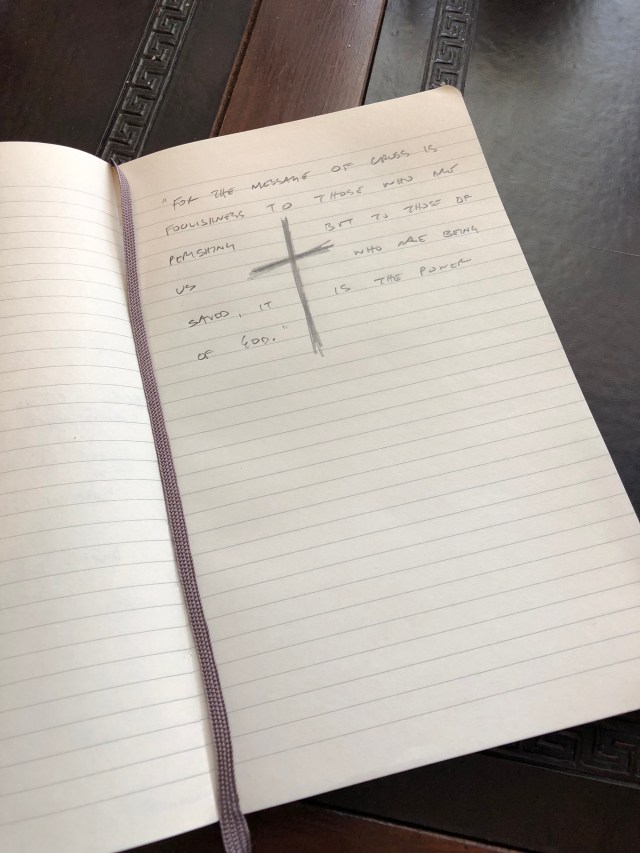 "FOR THE MESSAGE OF CROSS IS
FOOLISHNESS TO THOSE WHO ARE
PERISHING BUT TO THOSE OF
US WHO ARE BEING
SAVED, IT IS THE POWER
OF GOD."